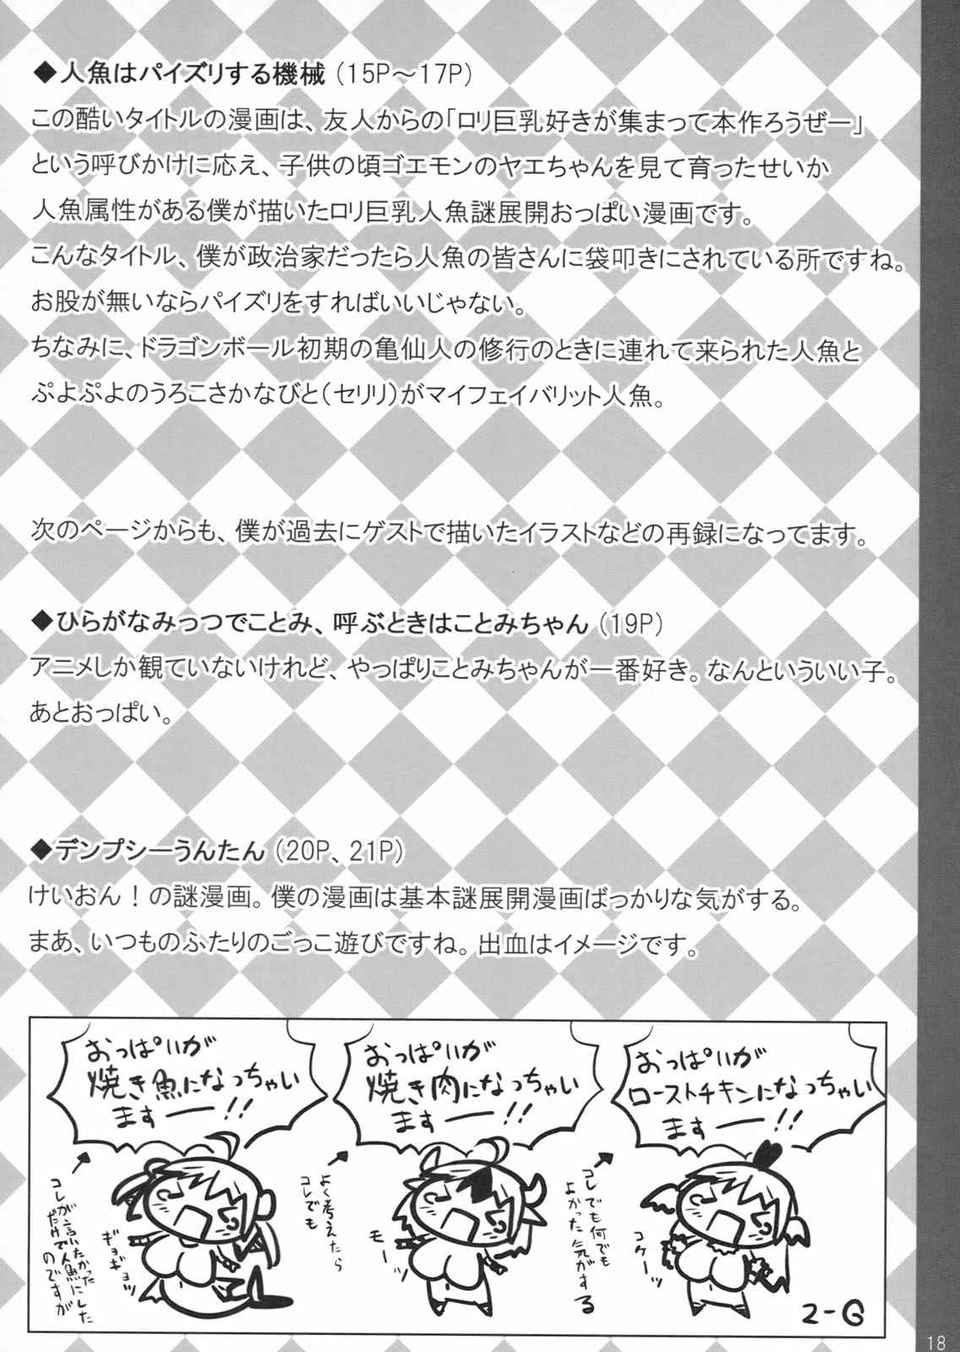 ◆人魚はパイズリする機械 (15P～17P)
この酷いタイトルの漫画は、友人からの「ロリ巨乳好きが集まって本作ろうぜー」
という呼びかけに応え、子供の頃ゴエモンのヤエちゃんを見て育ったせいか
人魚属性がある僕が描いたロリ巨乳人魚謎展開おっぱい漫画です。
こんなタイトル、僕が政治家だったら人魚の皆さんに袋叩きにされている所ですね。
お股が無いならパイズリをすればいいじゃない。
ちなみに、ドラゴンボール初期の亀仙人の修行のときに連れて来られた人魚と
ぷよぷよのうろこさかなびと(セリリ)がマイフェイバリット人魚。
次のページからも、僕が過去にゲストで描いたイラストなどの再録になってます。
◆ひらがなみっつでことみ、呼ぶときはことみちゃん (19P)
アニメしか観ていないけれど、やっぱりことみちゃんが一番好き。なんといういい子。
あとおっぱい。
◆デンプシーうんたん (20P、21P)
けいおん！の謎漫画。僕の漫画は基本謎展開漫画ばっかりな気がする。
まあ、いつものふたりのごっこ遊びですね。出血はイメージです。
おっぱいが
焼き魚になっちゃい
ますー!!
コレが言いたかった
だけで人魚にした
のですが
ギョギョッ
おっぱいが
焼き肉になっちゃい
ますー!!
よく考えたら
コレでも
モーッ
おっぱいが
ローストチキンになっちゃい
ますー!!
コレでも何でも
よかった気がする
コケーッ
2-G
18